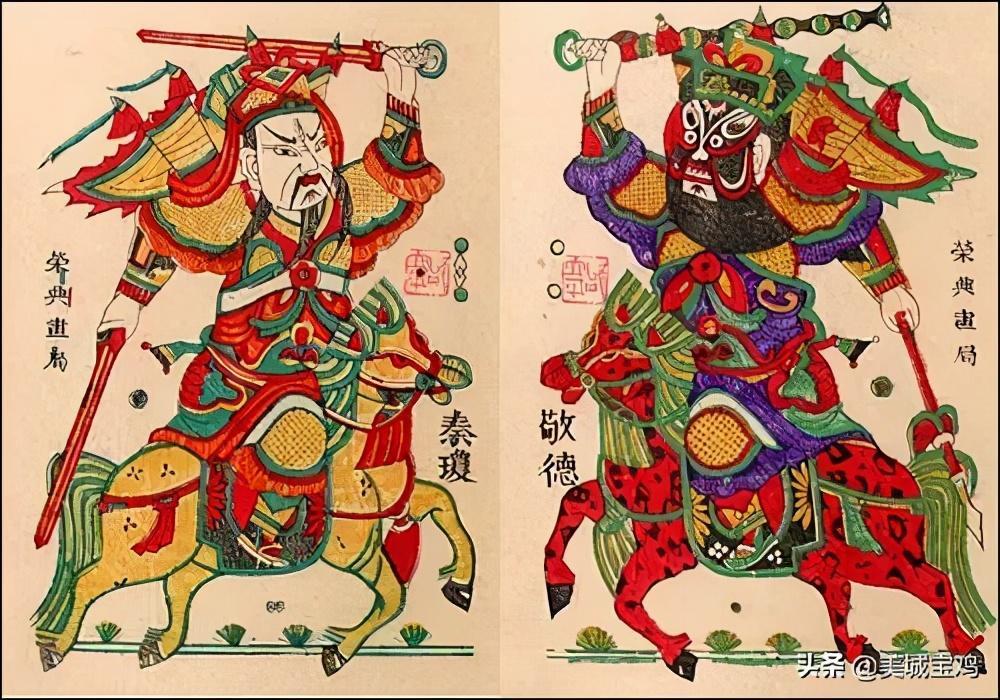 荣典畫局
秦瓊
敬德
荣典畫局
头条 @美城宝鸡